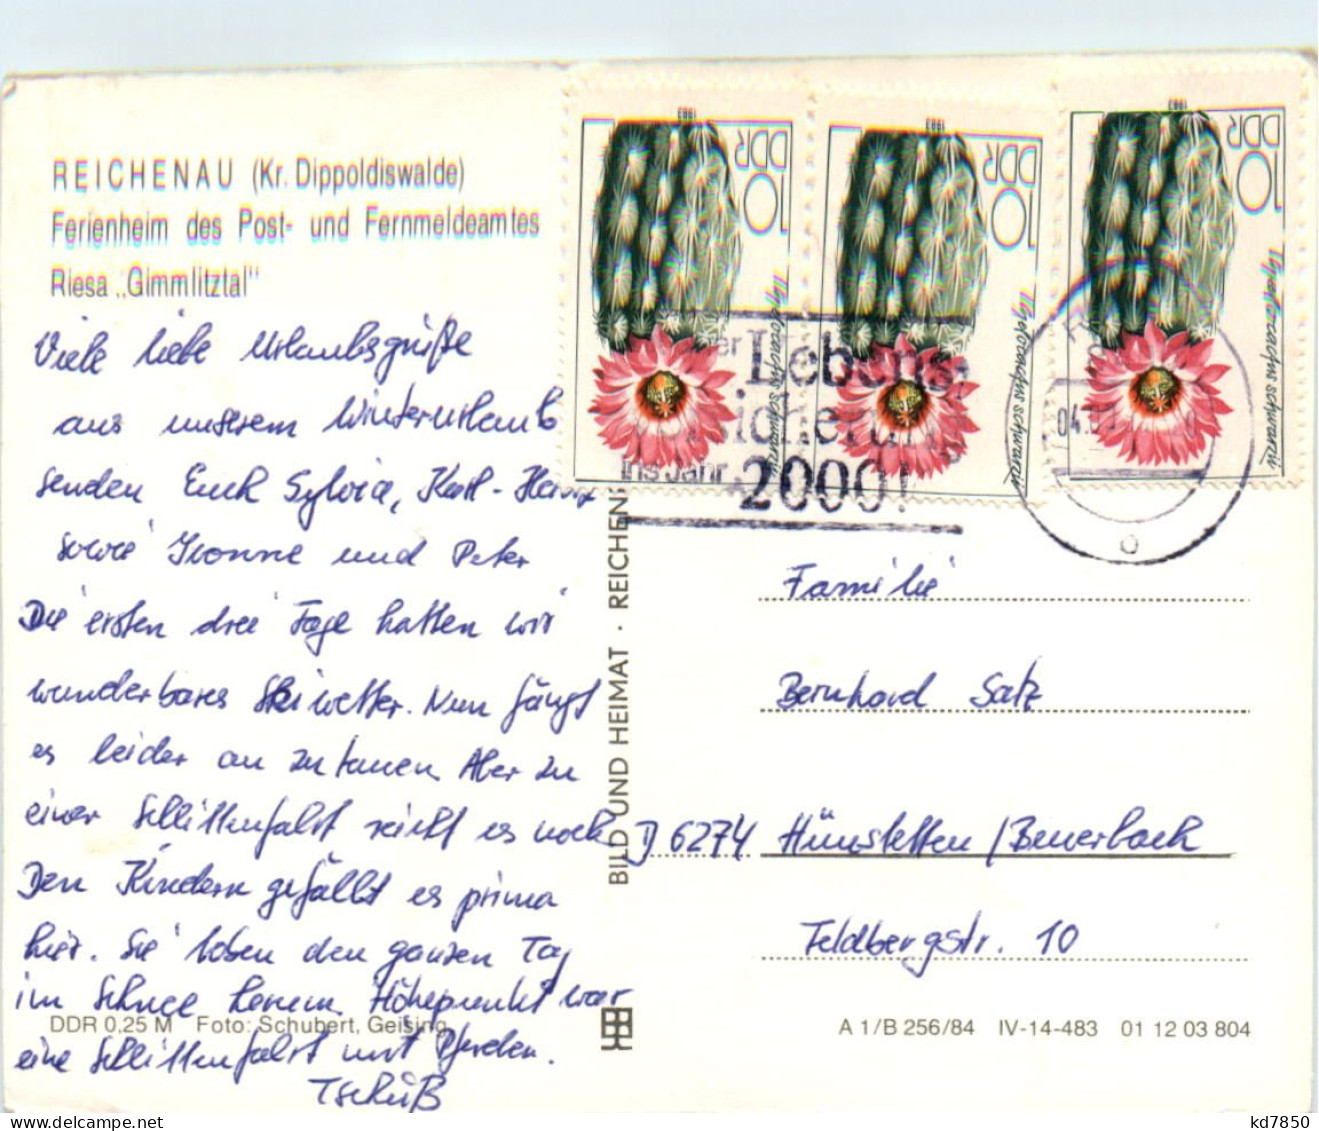 REICHENAU (Kr. Dippoldiswalde)
Ferienheim des Post- und Fernmeldeamtes
Riesa „Gimmlitztal"
Viele liebe Urlaubsgrüße
aus unserem Winterurlaub
senden Euch Sylvia, Karl-Heinz
sowie Ivonne und Peter
Die ersten drei Tage hatten wir
wunderbares Skiwetter. Nun fängt
es leider an zu tauen. Aber zu
einer Schlittenfahrt reicht es noch
Den Kindern gefällt es prima
hier. Sie toben den ganzen Tag
im Schnee herum. Höhepunkt war
DDR 0,25 M Foto: Schubert, Geising
eine Schlittenfahrt mit Pferden.
Tschüß
BILD UND HEIMAT · REICHEN
1983
DDR
10
schwarzii
1983
DDR
10
schwarzii
1983
DDR
10
schwarzii
Lebens
ins Jahr
2000!
04.
Familie
Bernhard Satz
D 6274 Hünstetten/Beuerbach
Feldbergstr. 10
A 1/B 256/84 IV-14-483 01 12 03 804
kd7850